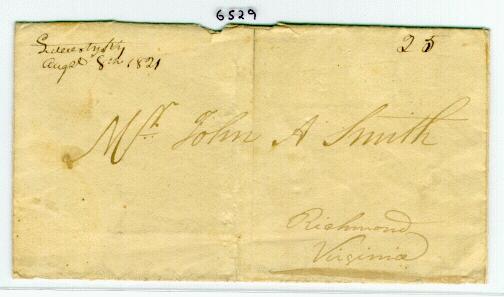 6529
25
Augst 8th 1821
Mr. John A Smith
Richmond
Virginia